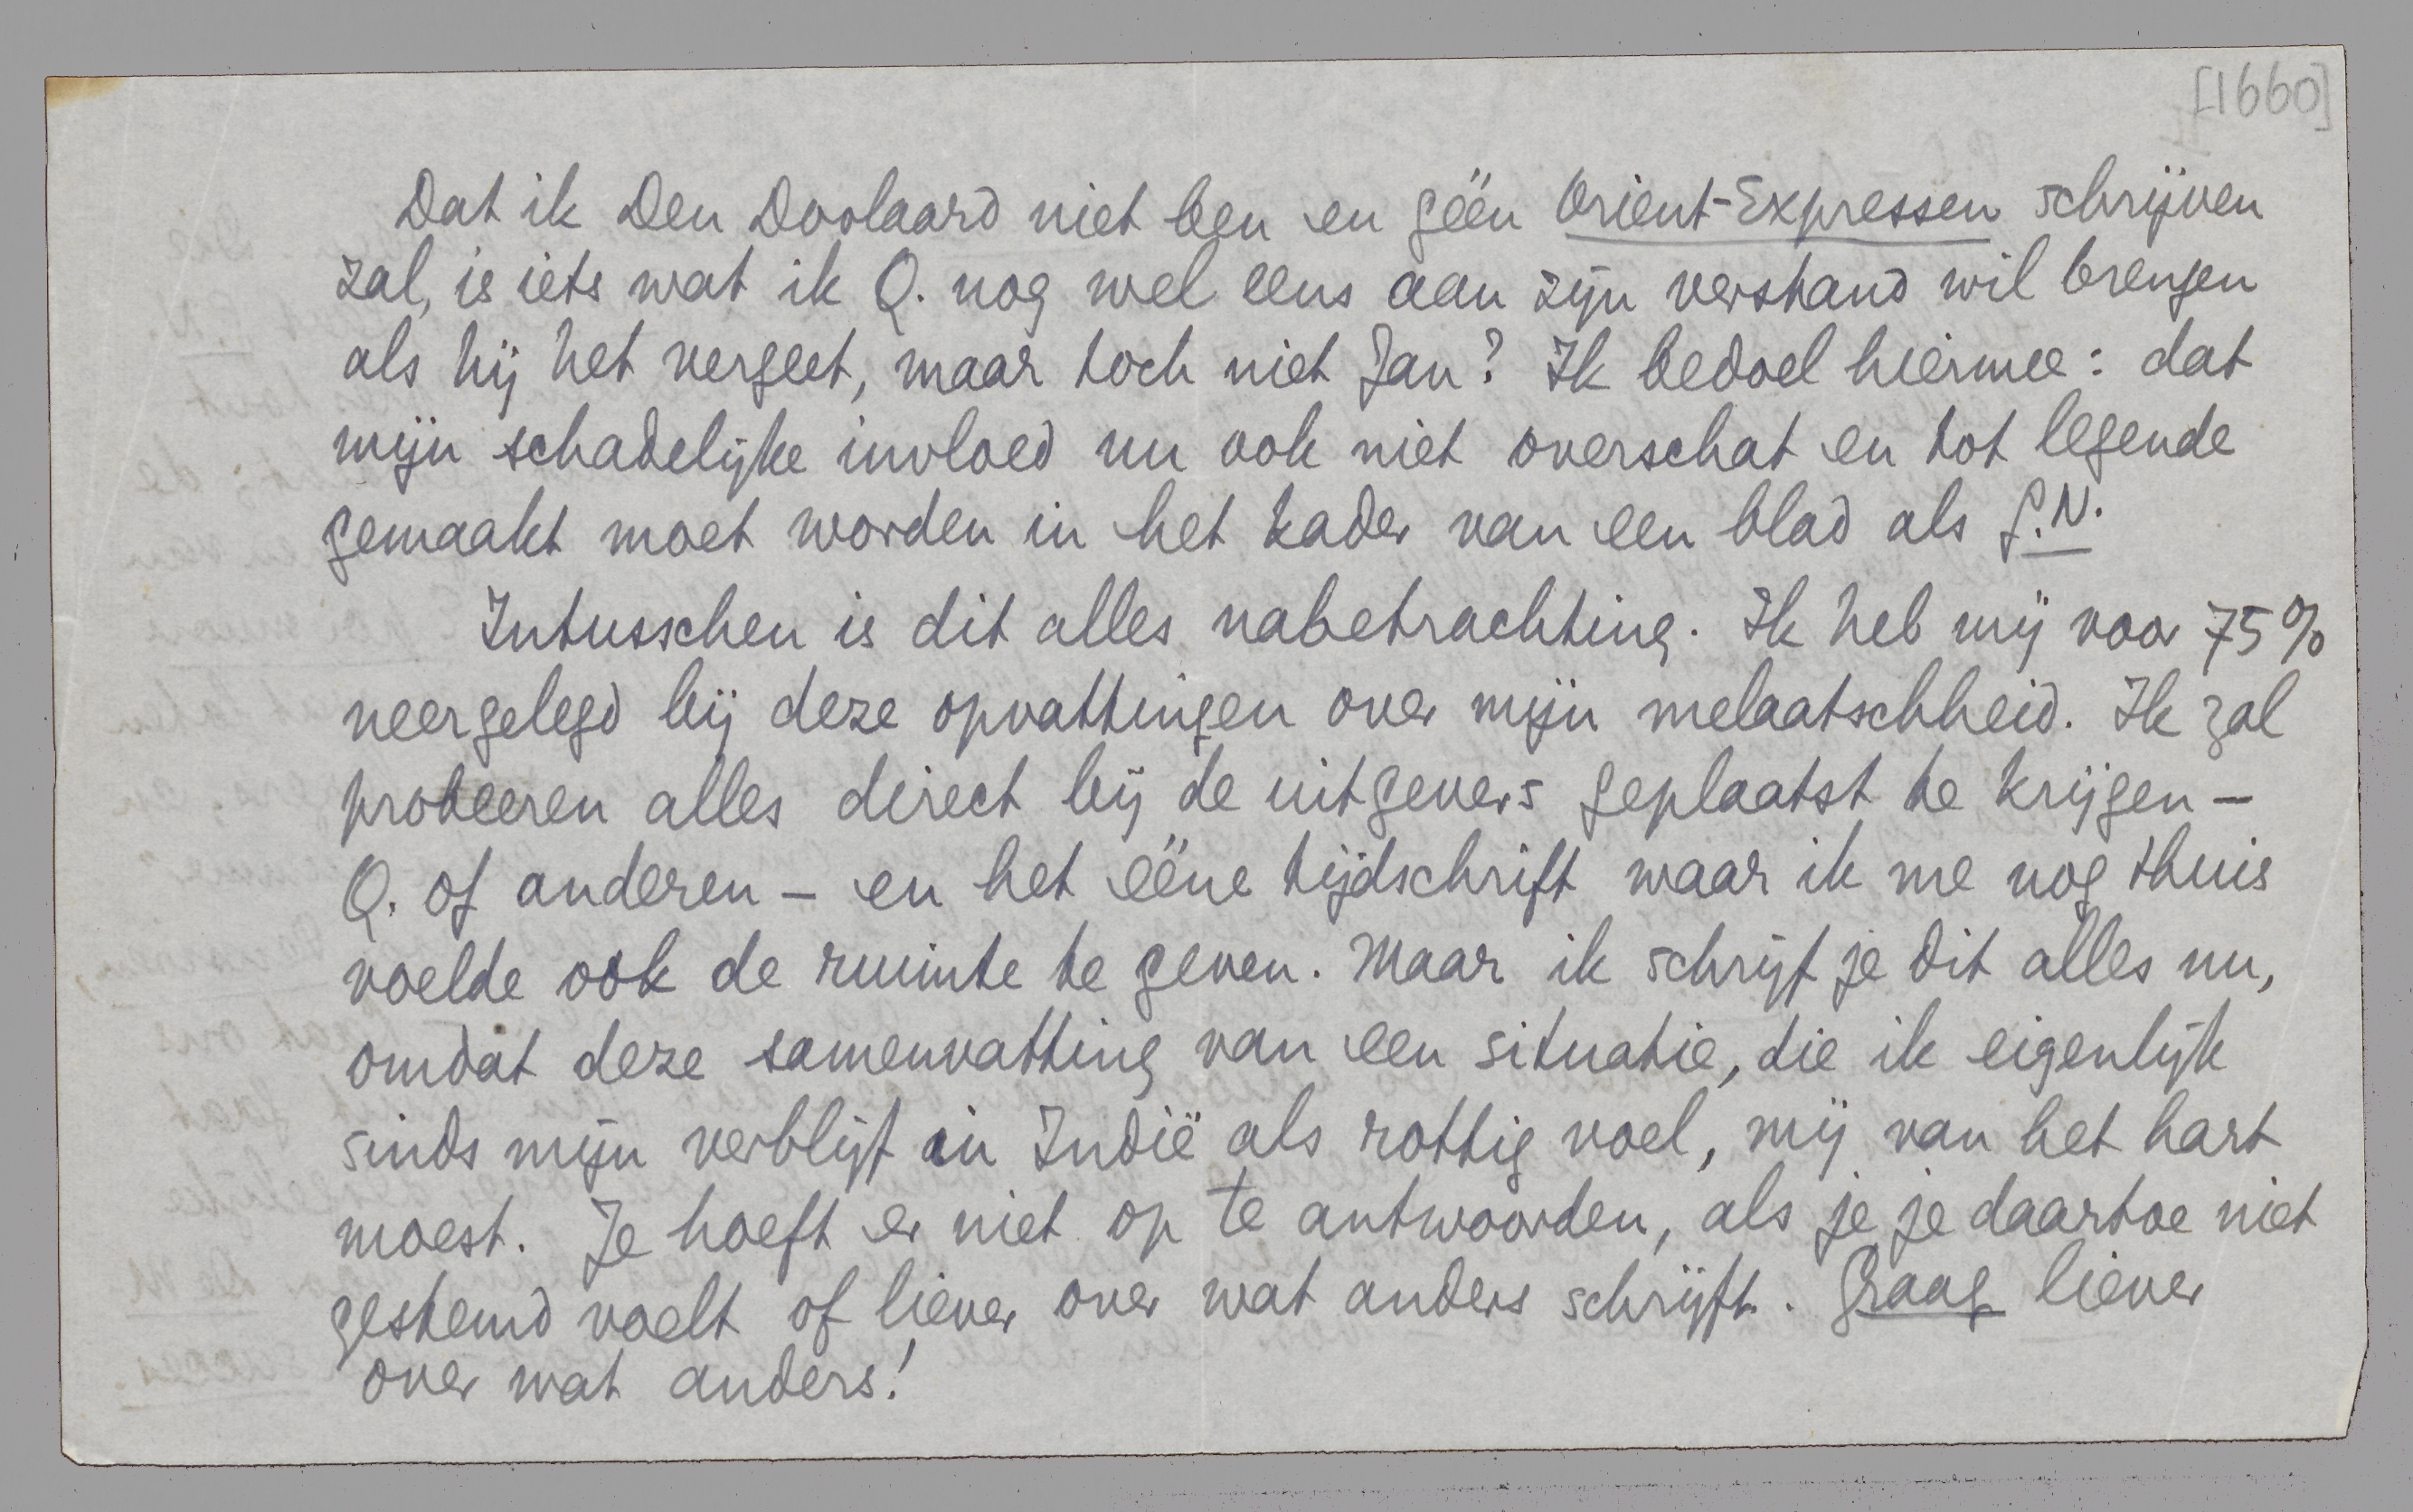 [1660]
Dat ik Den Doolaard niet ben en géén Orient-Expressen schrijven
zal, is iets wat ik Q. nog wel eens aan zijn verstand wil brengen
als hij het vergeet, maar toch niet Jan? Ik bedoel hiermee: dat
mijn schadelijke invloed nu ook niet overschat en tot legende
gemaakt moet worden in het kader van een blad als G.N.
Intusschen is dit alles nabetrachting. Ik heb mij voor 75%
neergelegd bij deze opvattingen over mijn melaatschheid. Ik zal
probeeren alles direct bij de uitgevers geplaatst te krijgen –
Q. of anderen – en het ééne tijdschrift waar ik me nog thuis
voelde ook de ruimte te geven. Maar ik schrijf je dit alles nu,
omdat deze samenvatting van een situatie, die ik eigenlijk
sinds mijn verblijf in Indië als rottig voel, mij van het hart
moest. Je hoeft er niet op te antwoorden, als je je daartoe niet
gestemd voelt of liever over wat anders schrijft. Graag liever
over wat anders!